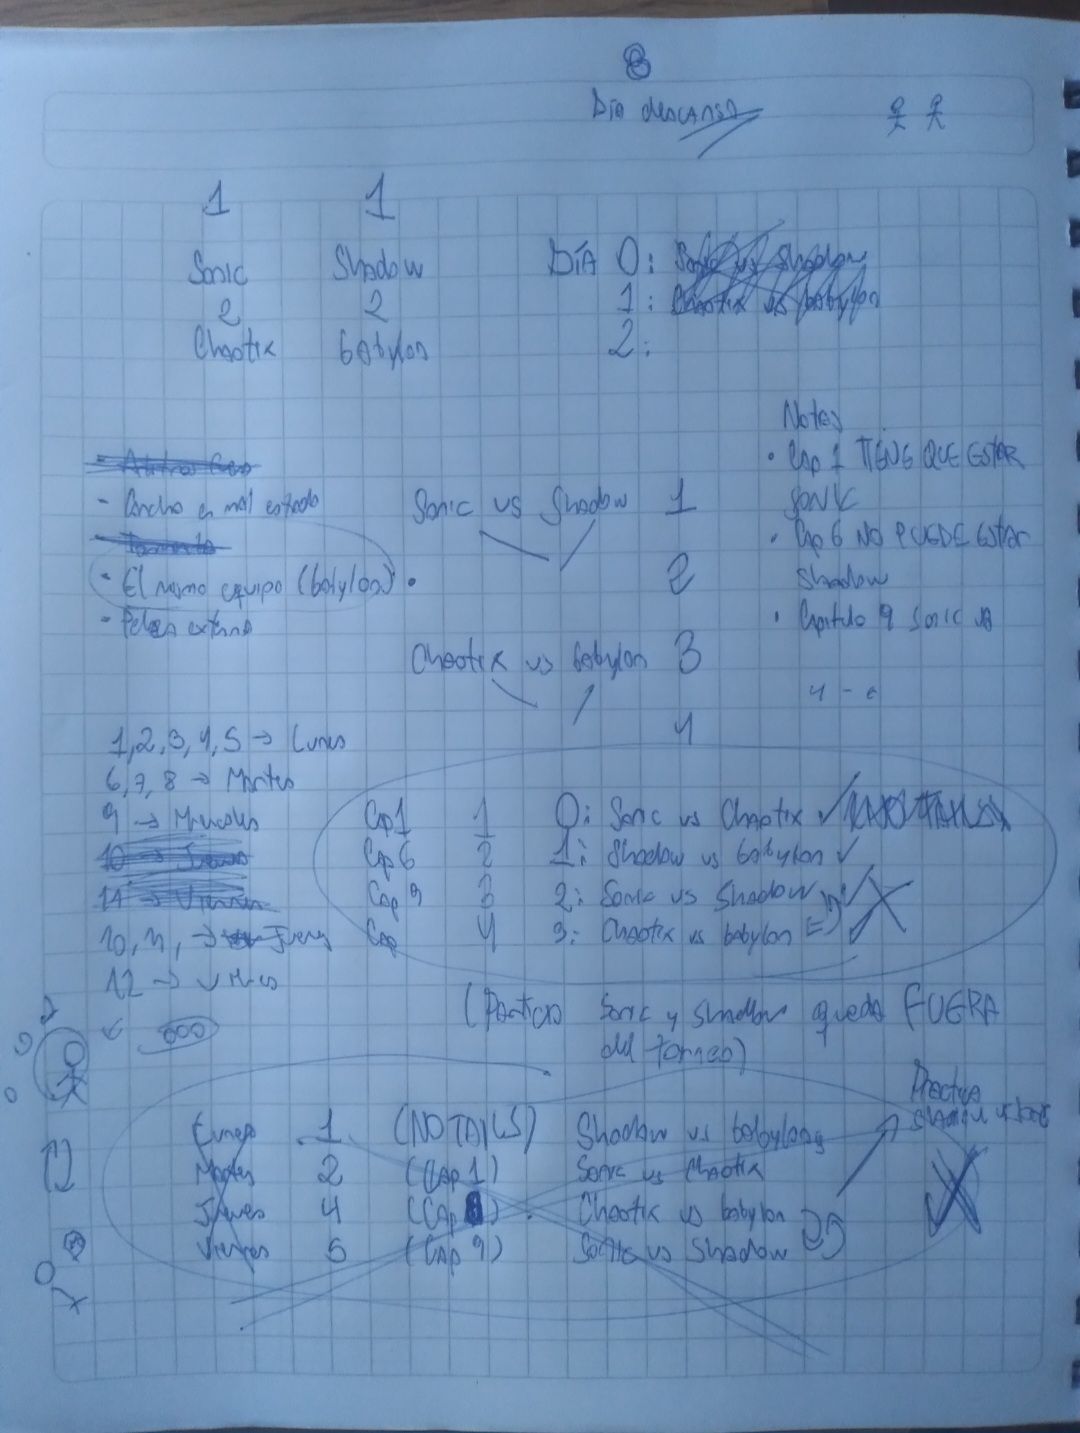 8
Día descanso
1 1
Sonic Shadow
2 2
Chaotix babylon
DÍA 0: Sonic vs Shadow
1: Chaotix vs babylon
2:
Notas
• Cap 1 TIENE QUE ESTAR
SONIC
• Cap 6 NO PUEDE ESTAR
Shadow
• Capitulo 9 Sonic
4 -
- Cancha en mal estado
- El mismo equipo (babylon) •
- Pelea externa
Sonic vs Shadow 1
2
Chaotix vs babylon 3
4
1, 2, 3, 4, 5 → Lunes
6, 7, 8 → Martes
9 → Miercoles
10 → Jueves
11 → Viernes
10, 11, → Jueves
12 → Viernes
Cap 1 1 0: Sonic vs Chaotix
Cap 6 2 1: Shadow vs babylon
Cap 9 3 2: Sonic vs Shadow
Cap 4 3: Chaotix vs babylon
(Partido Sonic y Shadow queda FUERA
del torneo)
Lunes 1 (NO TAILS) Shadow vs babylon
Martes 2 (Cap 1) Sonic vs Chaotix
Jueves 4 (Cap 8) Chaotix vs babylon
Viernes 5 (Cap 9) Sonic vs Shadow